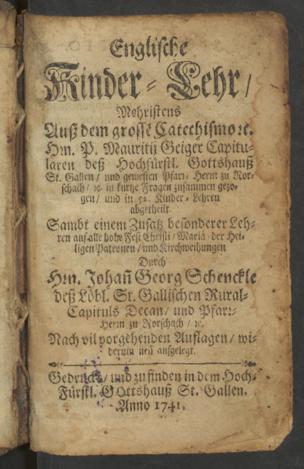 Englische
Kinder-Lehr/
Mehristens
Auß dem grossē Catechismo ꝛc.
Hrn. P. Mauritii Geiger Capitu-
laren deß Hochfürstl. Gottshauß
St. Gallen / und geweßten Pfarꝛ-Herrn zu Ror-
schach / ꝛc. in kurtze Fragen zusammen gezo-
gen / und in 52. Kinder-Lehren
abgetheilt.
Sambt einem Zusatz besonderer Leh-
ren auf alle hohe Fest Christi / Mariä der Hei-
ligen Patronen / und Kirchweihungen
Durch
Hrn. Johañ Georg Schenckle
deß Löbl. St. Gallischen Rural-
Capituls Decan / und Pfarꝛ-
Herrn zu Rorschach / ꝛc.
Nach vil vorgehenden Auflagen / wi-
derum neu aufgelegt.
Gedruckt / und zu finden in dem Hoch-
Fürstl. GOttshauß St. Gallen.
Anno 1741.